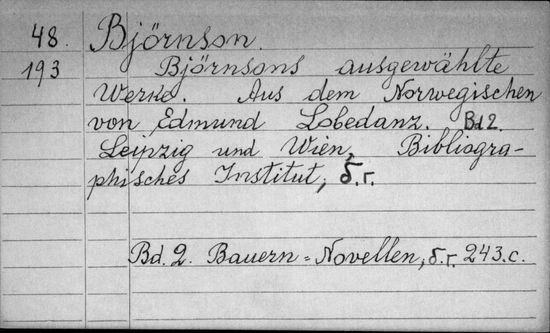 48. Björnson.
193 Björnsons ausgewählte
Werke. Aus dem Norwegischen
von Edmund Lobedanz. Bd 2.
Leipzig und Wien, Bibliogra-
phisches Institut, б.г.
Bd. 2. Bauern=Novellen, б.г. 243.с.